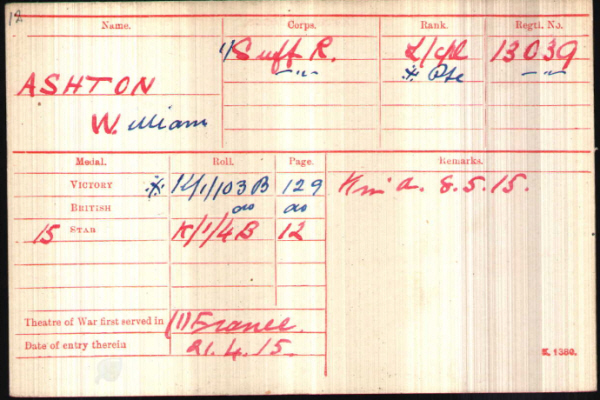 12
Name. Corps. Rank. Regtl. No.
1/ Suff R. L/Cpl 13039
ASHTON —"— * Pte —"—
William
Medal. Roll. Page. Remarks.
VICTORY * K/1/103 B 129 K in a. 8.5.15.
BRITISH do do
15 STAR K/1/4 B 12
Theatre of War first served in (1) France.
Date of entry therein 21.4.15.
K. 1380.